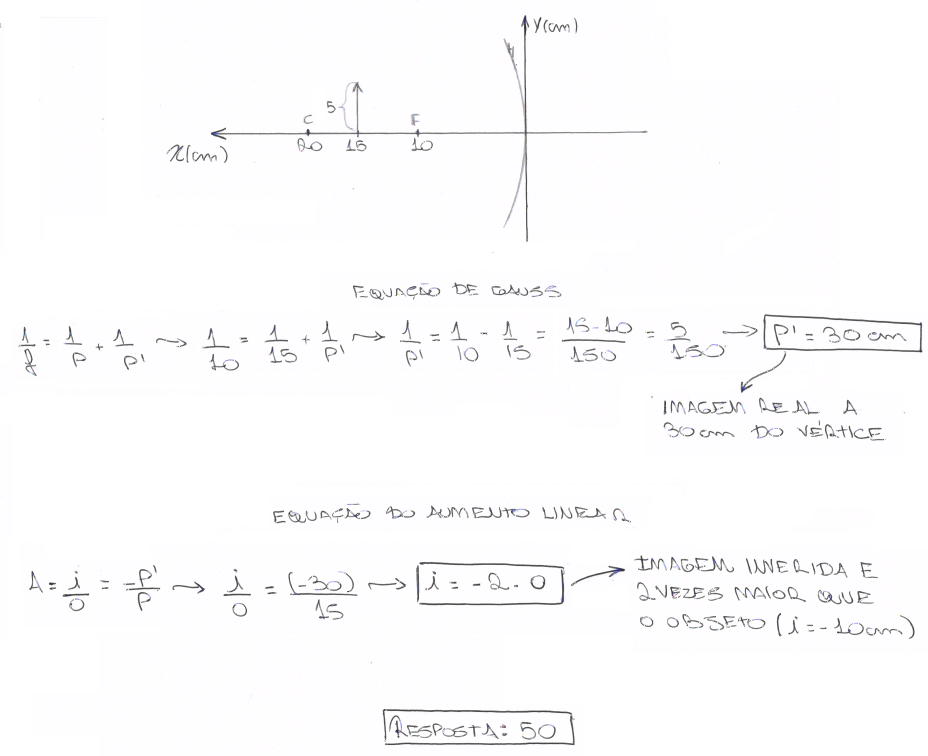 Y(cm)
5
C F
20 15 10
X(cm)
EQUAÇÃO DE GAUSS
1/f = 1/P + 1/P' → 1/10 = 1/15 + 1/P' → 1/P' = 1/10 - 1/15 = 15-10/150 = 5/150 → P' = 30 cm
IMAGEM REAL A
30 cm DO VÉRTICE
EQUAÇÃO DO AUMENTO LINEAR
A = i/o = -P'/P → i/o = (-30)/15 → i = -2 . O → IMAGEM INVERIDA E
2 VEZES MAIOR QUE
O OBJETO (i = -10cm)
RESPOSTA: 50